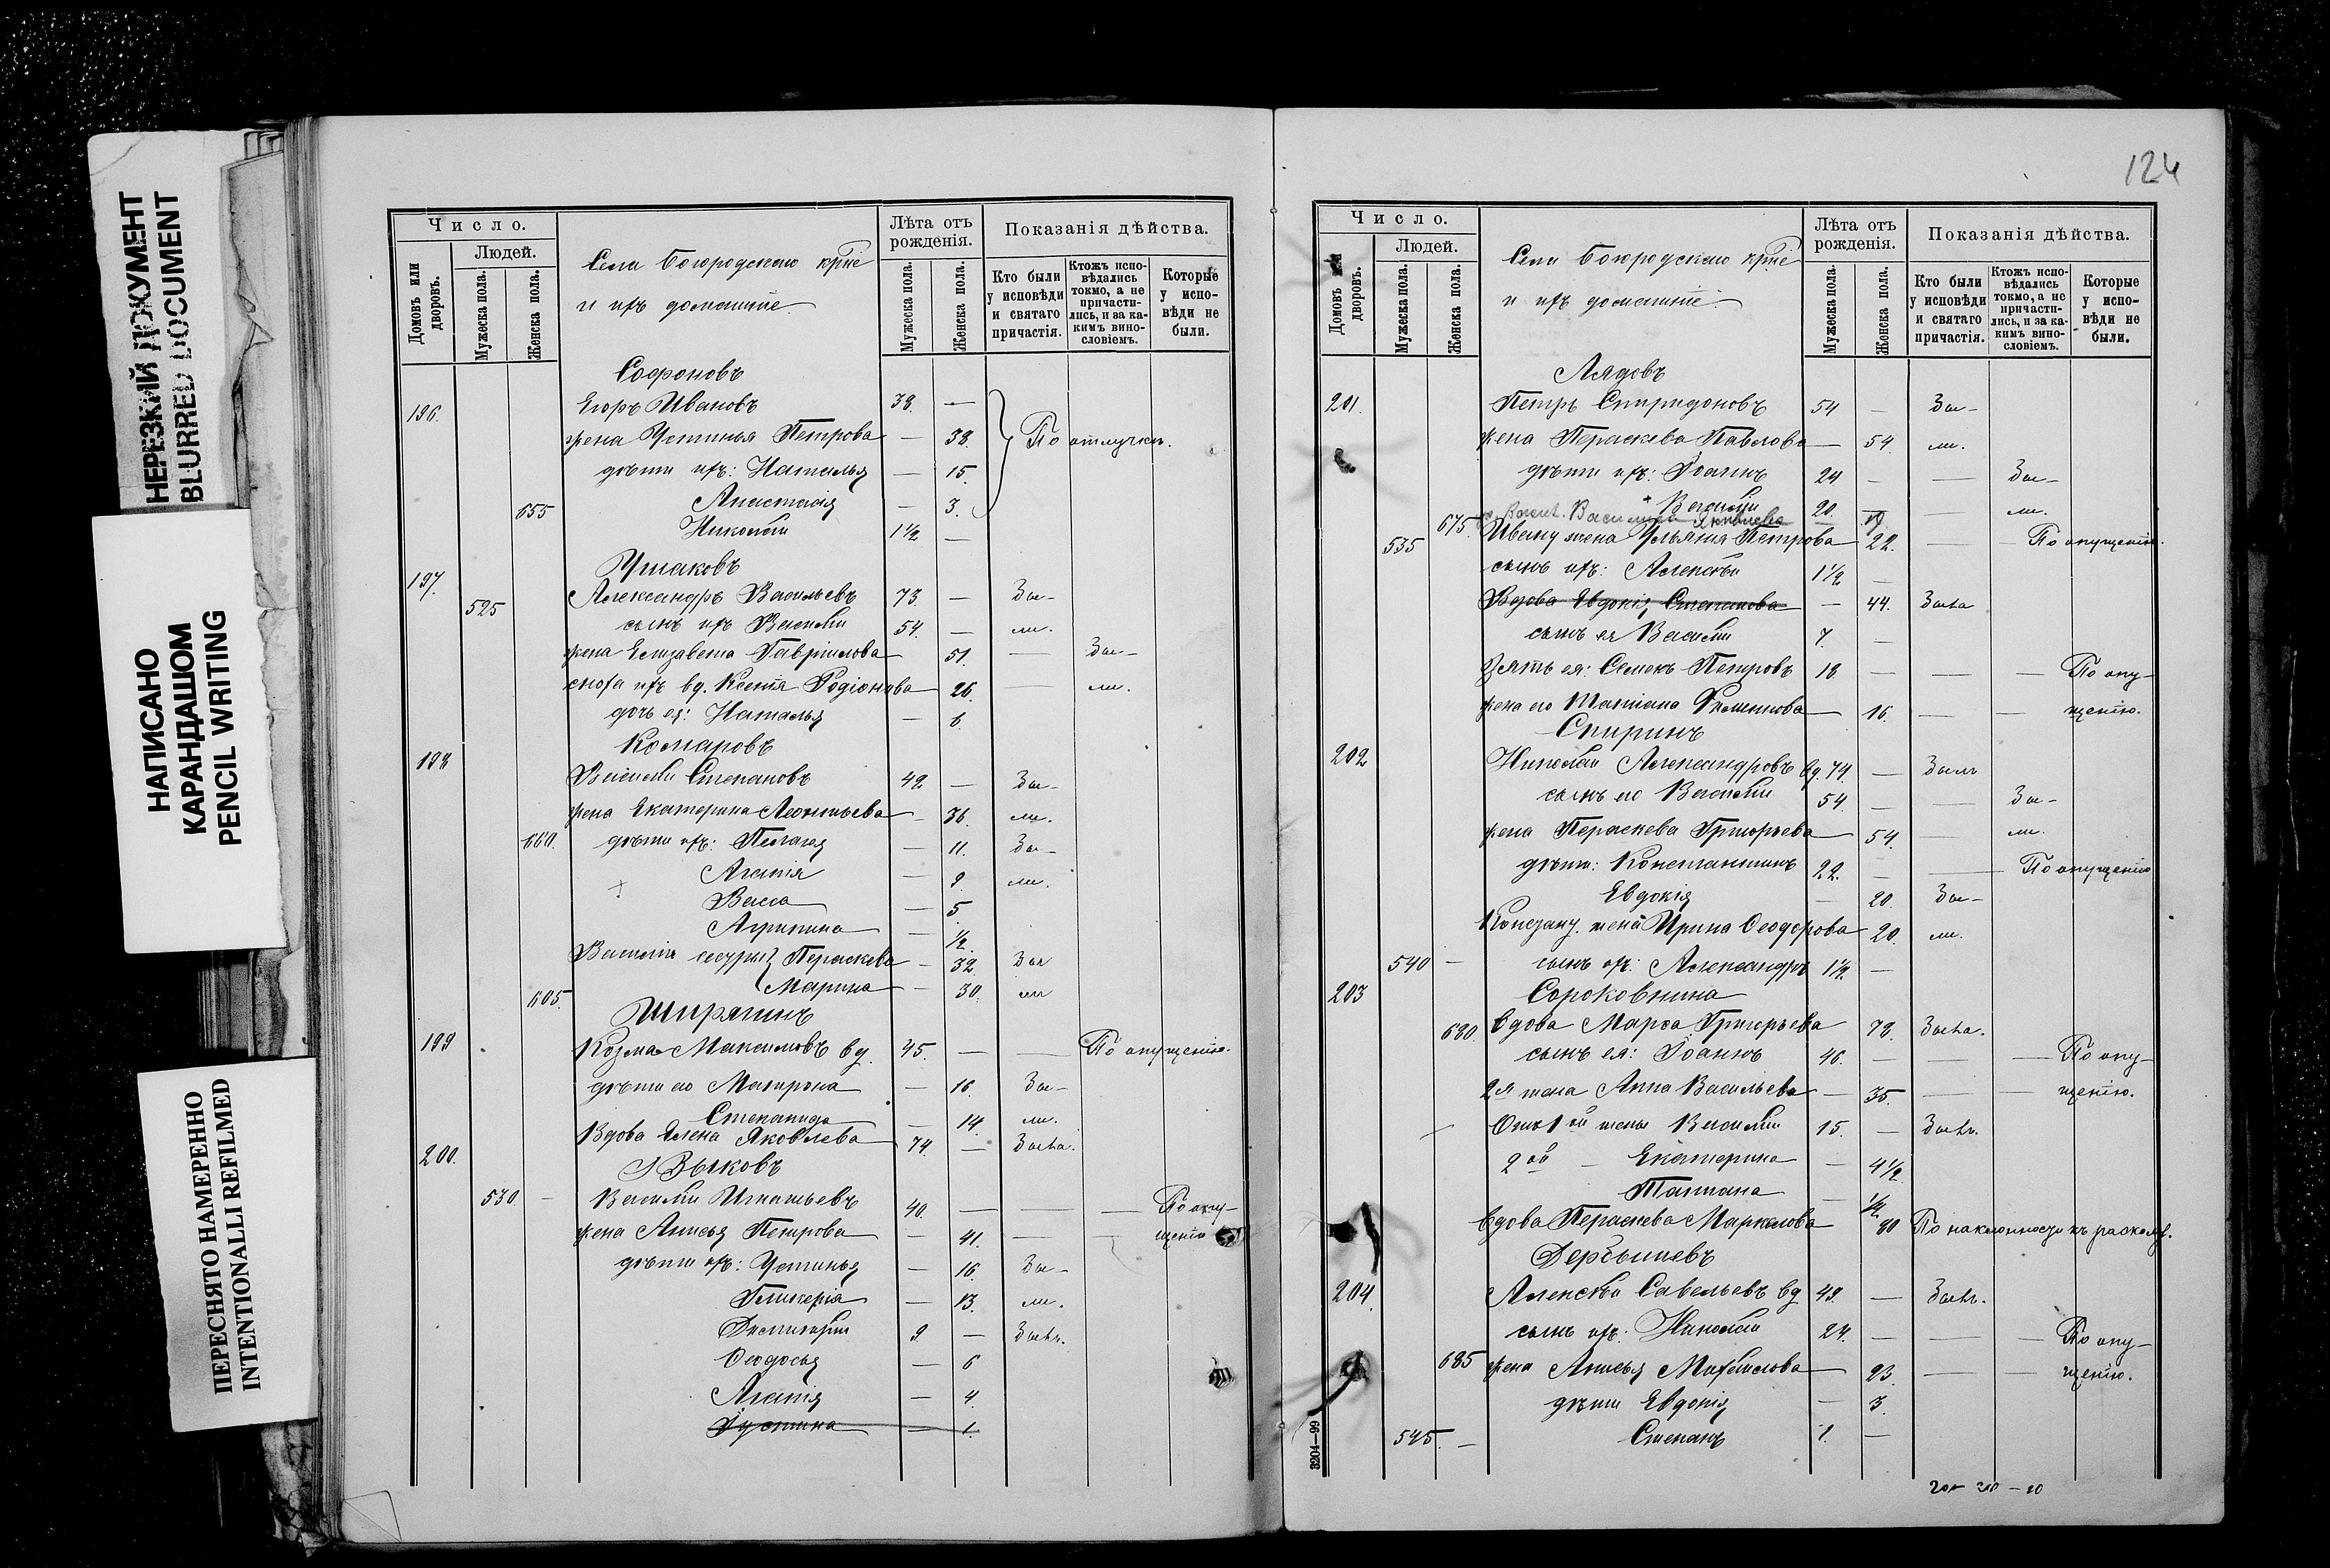 НЕРЕЗКИЙ ДОКУМЕНТ
BLURRED DOCUMENT
НАПИСАНО
КАРАНДАШОМ
PENCIL WRITING
ПЕРЕСНЯТО НАМЕРЕННО
INTENTIONALLI REFILMED
Число.
Людей.
Домовъ или дворовъ.
Мужеска пола.
Женска пола.
Села Богородскаго крт̃не
и ихъ домашніе.
Лѣта отъ рожденія.
Мужеска пола.
Женска пола.
Показанія дѣйства.
Кто были у исповѣди и святаго причастія.
Ктожъ исповѣдались токмо, а не причастились, и за какимъ винословіемъ.
Которые у исповѣди не были.
Софоновъ
196. Егоръ Ивановъ 38. —
жена Устинья Петрова — 38. По отлучкѣ.
дѣти ихъ: Наталья — 15.
655 Анастасія — 3.
Николай 1 1/2 —
Ушаковъ
197. 525 Александръ Васильевъ 73. — Бы-
сынъ ихъ Василій 54. — ли.
жена Елизавета Гавріилова — 51. — Бы-
сноха ихъ вд. Ксенія Родіонова — 26 — ли.
дочь ея: Наталья — 6.
Комаровъ
198 Василій Степановъ 42 — Бы-
жена Екатерина Леонтьева — 36. ли.
660. дѣти ихъ: Пелагея — 11. Бы-
Агапія — 9. ли.
Васса — 5.
Агрипина — 1/2.
Василія сестры Параскева — 32. Бы
665. Марина — 30. ли
Ширяшинъ
199 Козма Максимовъ вд. 45. — — По опущенію.
дѣти его Матрона — 16. Бы-
Степанида — 14. ли.
Вдова Елена Яковлева 74. — Была.
200. Зыковъ
530 — Василій Игнатьевъ 40. — — — По опу-
жена Анисья Петрова — 41. — — щенію
дѣти ихъ: Устинья — 16. Бы-
Гликерія — 13. ли.
Димитрій 9. — Былъ.
Ѳеодосья — 6
Агапія — 4.
Іустина — 1.
124
Число.
Людей.
Домовъ или дворовъ.
Мужеска пола.
Женска пола.
Села Богородскаго крт̃не
и ихъ домашніе.
Лѣта отъ рожденія.
Мужеска пола.
Женска пола.
Показанія дѣйства.
Кто были у исповѣди и святаго причастія.
Ктожъ исповѣдались токмо, а не причастились, и за какимъ винословіемъ.
Которые у исповѣди не были.
Лядовъ
201. Петръ Спиридоновъ 54 — Бы-
жена Параскева Павлова — 54. ли.
дѣти ихъ: Іоаннъ 24 — — Бы-
Василій 20. — — ли.
Яковлева
535 675 Ивану жена Ульянія Петрова — 22. — — По опущенію.
сынъ ихъ: Алексѣй 1 1/2 —
Вдова Евдокія Степанова — 44. Была
сынъ ея Василій 7. —
Зять ея: Семенъ Петровъ 18 — — — По опу-
жена его Татіана — 16. — — щенію.
Спиринъ
202 Николай Александровъ вд. 74. — Былъ
сынъ его Василій 54 — — Бы-
жена Параскева Григорьева — 54. — ли.
дѣти: Константинъ 22. — — По опущенію
Евдокія — 20. Бы-
жена Ирина Ѳеодорова 20. ли.
540 — сынъ ихъ: Александръ 1 1/2. —
203 Сороковнина
680. вдова Марѳа Григорьева 78. Была.
сынъ ея: Іоаннъ 46. — — — По опу-
2я жена Анна Васильева — 35. — — щенію.
Отъ 1ой жены Василій 15. — Былъ.
2ой — Екатерина — 4 1/2
Татіана — 1/2
вдова Параскева Маркелова 80 По наклонности къ расколу.
Дербышевъ
204. Алексѣй Савельевъ вд 49. — Былъ.
сынъ ихъ: Николай 24. — — — По опу-
685 жена Анисья Михайлова — 23. — — щенію.
дѣти Евдокія — 3.
545. — Степанъ 1. —
3204—99